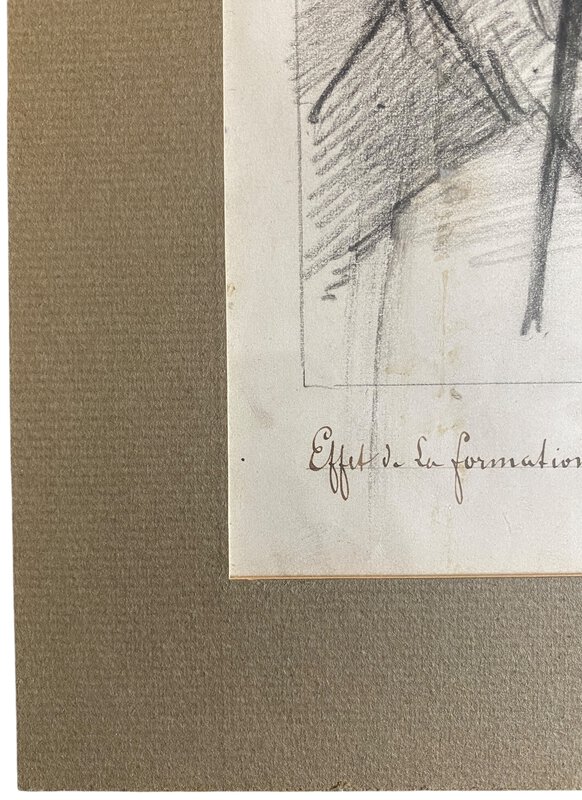 Effet de La formation